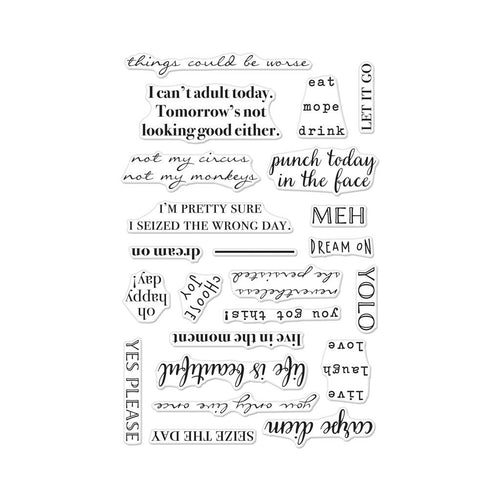 things could be worse
I can't adult today.
Tomorrow's not
looking good either.
eat
mope
drink
LET IT GO
not my circus
not my monkeys
punch today
in the face
I'M PRETTY SURE
I SEIZED THE WRONG DAY.
MEH
dream on
DREAM ON
oh
happy
day!
CHOOSE
JOY
nevertheless
she persisted
YOLO
you got this!
live in the moment
live
laugh
love
YES PLEASE
life is beautiful
you only live once
SEIZE THE DAY
carpe diem